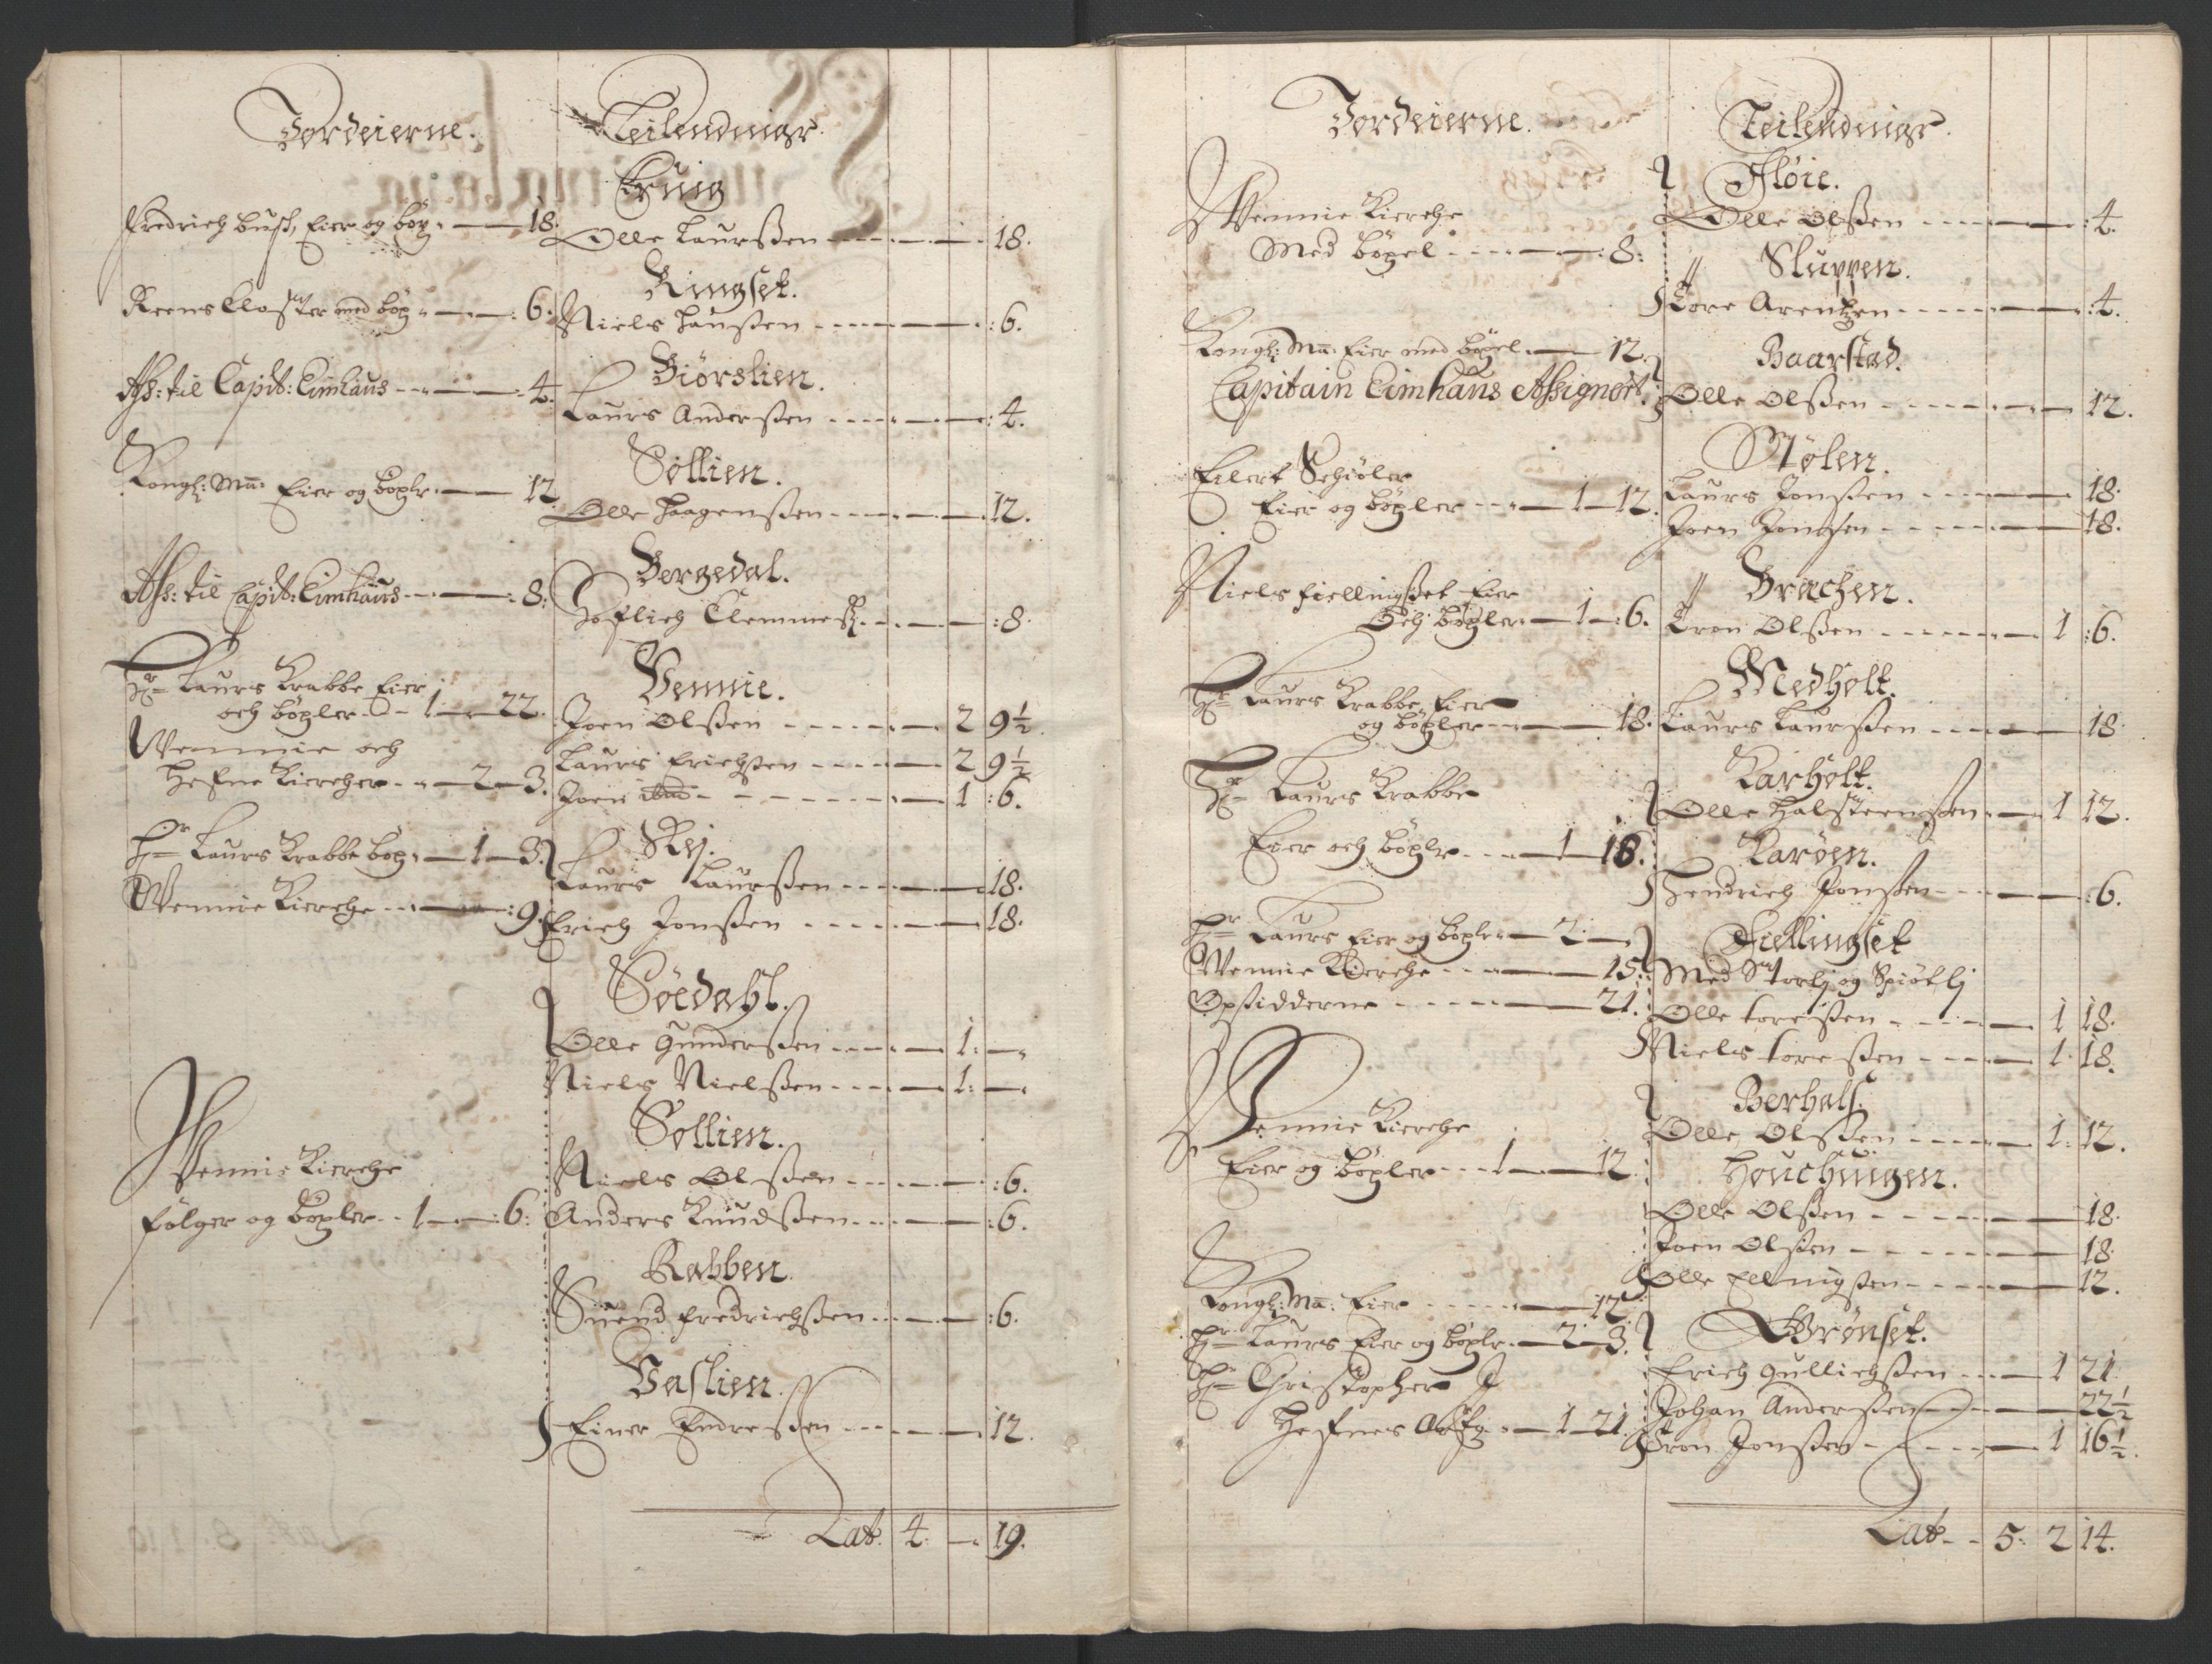 Jordeierne.
Fredrich Busch, Eier og böx: 18.
Reens Closter med böx: 6.
Ass: til Capit: Cimhaus 4.
Kongl: Ma: Eier og böxlr 12.
Ass: til Capit: Cimhaus 8:
Hr Laurs Krabbe Eier
och böxler 1 22.
Wennie och
Hefne Kiercher 2 3.
Hr Laurs Krabbe böx: 1 3.
Wennie Kierche 9.
Wennie Kierche
følger og böxler 1 6:
Leilendinger
Olle Laurssen 18.
Ringset.
Niels Hanssen 6.
Giörslien.
Laurs Anderssen 4.
Söllien.
Olle Haagenssen 12.
Bergedal.
Clemmess: 8.
Vennie.
Joen Olssen 2 9½
Laurs Erichssen 2 9½
Joen ibid 1 6.
Rej.
Laurs Laurssen 18.
Erich Jonssen 18.
Söedahl.
Olle Gunderssen 1:
Niels Nielssen 1:
Söllien.
Niels Olssen 6.
Anders Knudssen 6.
Rabben.
Suend Fredrichssen 6.
Vaslien.
Einer Endressen 12.
Lat. 4. 19.
Jordeierne.
Wennie Kierche
Med böxel 8:
Kongl: Ma: Eier med böxel 12.
Capitain Cimhans Assignert.
Eilert Schiöler
Eier og böxler 1 12.
Niels Fiellingset Eier
Och böxler 1 6.
Hr Laurs Krabbe Eier
og böxler 18.
Hr Laurs Krabbe
Eier och böxlr 1 18.
Hr Laurs Eier og böxler 2.
Wennie Kierche 15:
Opsidderne 21.
Wennie Kierche
Eier og böxler 1 12
Kongl: Ma: Eier 12.
Hr Laurs Eier og böxlr 2 3.
Hr Christopher J
Hefnes Arfg: 1 21.
Leilendinger.
Flöie.
Olle Olssen 4.
Sluppen.
Tore Arentzen 4.
Baarstad.
Olle Olssen 12.
Stölen.
Laurs Jonssen 18.
Joen Jonssen 18.
Brachen.
Tron Olssen 1 6.
Medholt.
Laurs Laurssen 18
Karholt.
Olle Halsteenssen 1 12.
Karöen.
Hendrich Jonssen 6.
Fiellingset
Med Storlj og Spiötlj
Olle Toressen 1 18.
Niels Toressen 1 18.
Berhals.
Olle Olssen 1: 12.
Houchingen.
Olle Olssen 18.
Joen Olssen 18
Olle Ellingssen 12.
Grönset.
Erich Gullichssen 1 21.
Johan Anderssen 22½
Tron Jonssen 1 16½.
Lat 5: 2 14.